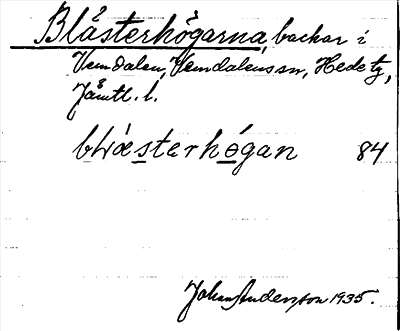 Blåsterhögarna, backar i
Vemdalen, Vemdalens sn, Hede tg,
Jämtl. l.
bLæsterhógan 84
Johan Andersson 1935.